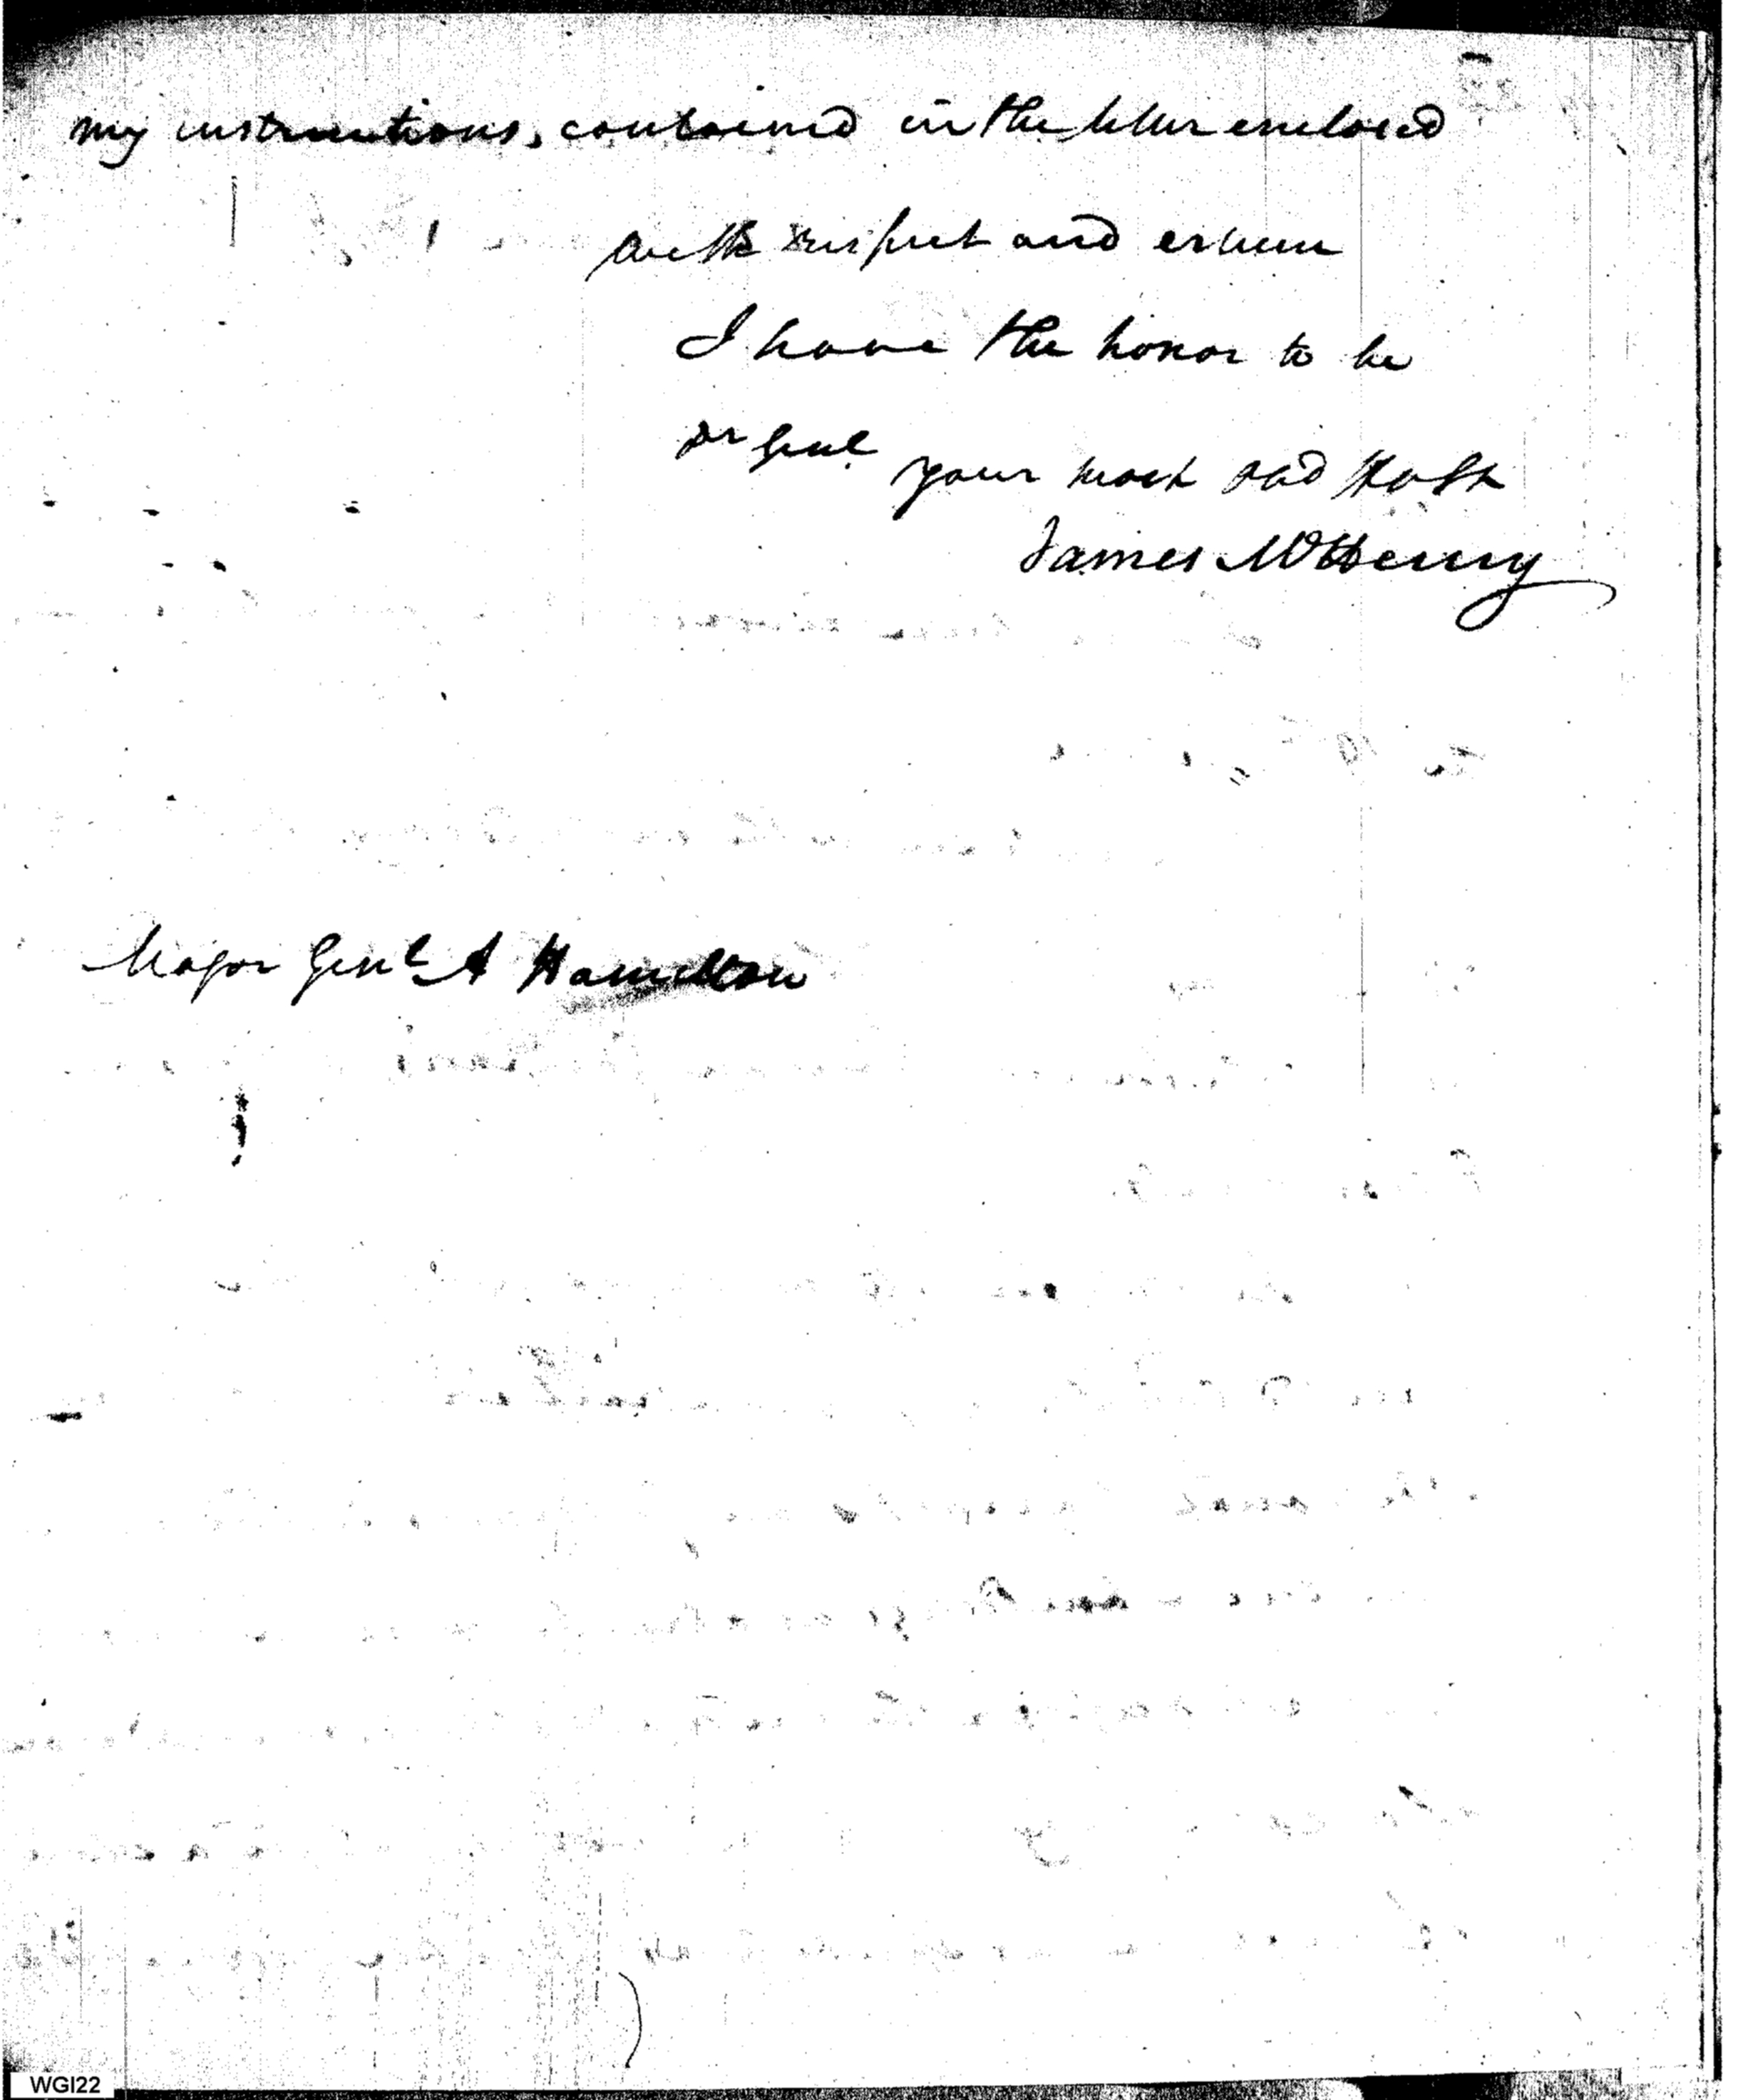 my instructions, contained in the letter enclosed
with respect and esteem
I have the honor to be
Dr Genl
your most obd Hb St
James McHenry
Major Genl A Hamilton
WGI22